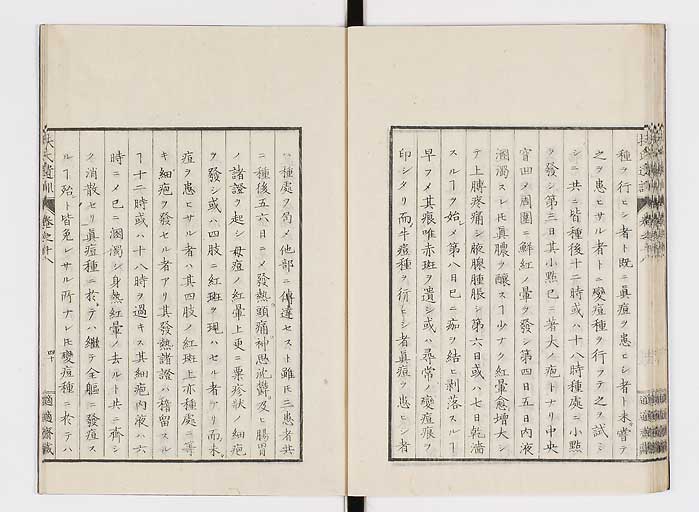 種ヲ行ヒシ者ト既ニ眞痘ヲ患ヒシ者ト未嘗テ
之ヲ患ヒサル者トニ變痘種ヲ行フテ之ヲ試ミ
シニ共ニ皆種後十二時或ハ十八時種處ニ小點
ヲ發シ第三日其小點已ニ著大ノ疱トナリ中央
窅凹メ周圍ニ鮮紅ノ暈ヲ發シ第四日五日內液
溷濁スレ𪜈眞膿ヲ釀スヿ少ナク紅暈愈增大シ
テ上膊疼痛シ腋腺腫脹シ第六日或ハ七日乾濇
スルヿヲ始メ第八日已ニ痂ヲ結ヒ剝落スルヿ
早フメ其痕唯赤斑ヲ遺シ或ハ尋常ノ變痘痕ヲ
印シタリ而牛痘種ヲ行ヒシ者眞痘ヲ患ヒシ者
ハ種處ヲ メ他部ニ傳達セスト雖𪜈三患者共
ニ種後五六日ニメ發熱頭痛神思沈鬱及ヒ腸胃
ノ諸證ヲ起シ母痘ノ紅暈上更ニ粟疹狀ノ細疱
ヲ發シ或ハ四肢ニ紅斑ヲ現ハセル者アリ而未
痘ヲ患ヒサル者ハ其四肢ノ紅斑上亦種處ニ等
キ細疱ヲ發セル者アリ其發熱諸證ハ稽留スル
ヿ十二時或ハ十八時ヲ過キス其細疱內液ハ六
時ニメ已ニ溷濁シ身熱紅暈ノ去ルト共ニ齊シ
ク消散セリ眞痘種ニ於テハ繼テ全軀ニ發痘ス
ルヿ殆ト皆免レサル所ナレ𪜈變痘種ニ於テハ
扶氏遺訓 卷之十八 四十 適適齋藏